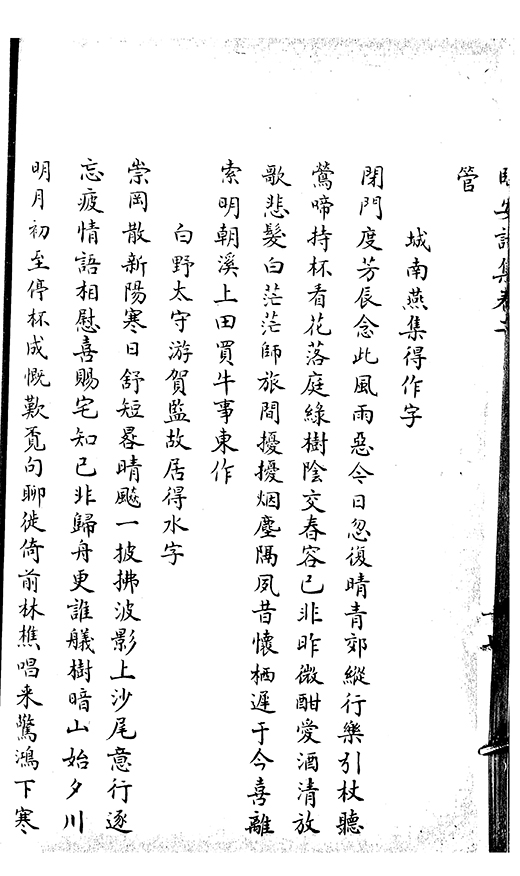 臨安詩集卷
管
城南燕集得作字
閉門度芳辰念此風雨惡今日忽復晴青郊縱行樂引杖聽
鶯啼持杯看花落庭綠樹陰交春容已非昨微酣愛酒清放
歌悲髮白茫茫師旅間擾擾烟塵隔夙昔懷栖遲于今喜離
索明朝溪上田買牛事東作
白野太守游賀監故居得水字
崇岡散新陽寒日舒短晷晴飈一披拂波影上沙尾意行遂
忘疲情語相慰喜賜宅知已非歸舟更誰艤樹暗山始夕川
明月初至停杯成慨歎覔句聊徙倚前林樵唱来驚鴻下寒